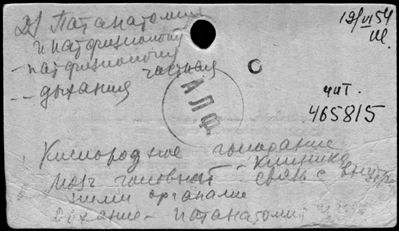 Патанатомия
и патфизиология
- патфизиология
частная
- дыхания
19/VI 54
чит.
465815
АЛФ
Кислородное голодание
Мозг головной - клиника
связь с
ними органами
Дыхание - патанатомия